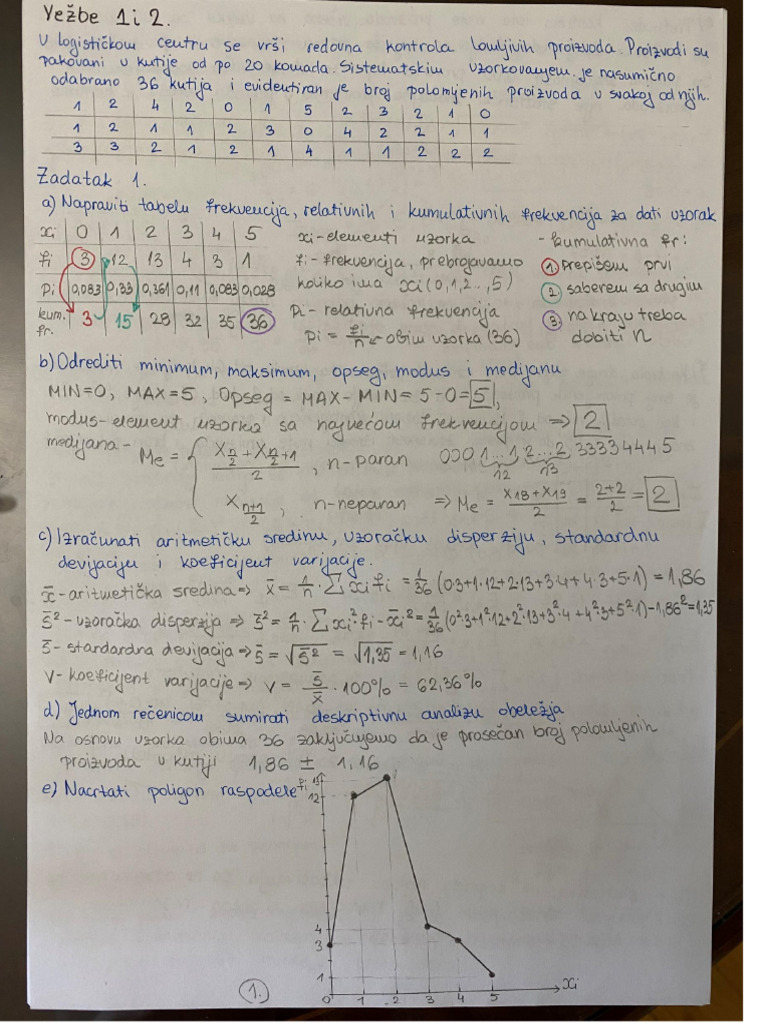 Vežbe 1 i 2.
U logističkom centru se vrši redovna kontrola lomljivih proizvoda. Proizvodi su
pakovani u kutije od po 20 komada. Sistematskim uzorkovanjem je nasumično
odabrano 36 kutija i evidentiran je broj polomljenih proizvoda u svakoj od njih.
1 2 4 2 0 1 5 2 3 2 1 0
1 2 1 1 2 3 0 4 2 2 1 1
3 3 2 1 2 1 4 1 1 2 2 2
Zadatak 1.
a) Napraviti tabelu frekvencija, relativnih i kumulativnih frekvencija za dati uzorak
xi 0 1 2 3 4 5
fi 3 12 13 4 3 1
pi 0,083 0,33 0,361 0,11 0,083 0,028
kum. fr. 3 15 28 32 35 36
xi - elementi uzorka
fi - frekvencija, prebrojavamo
koliko ima xi (0,1,2..,5)
pi - relativna frekvencija
pi = fi/n ← obim uzorka (36)
- kumulativna fr:
1. prepišem prvi
2. saberem sa drugim
3. na kraju treba
dobiti n
b) Odrediti minimum, maksimum, opseg, modus i medijanu
MIN=0, MAX=5, Opseg = MAX-MIN= 5-0=5,
modus-element uzorka sa najvećom frekvencijom => 2
medijana - Me = { (x n/2 + x n/2+1)/2 , n-paran 000 1...1 2...2 333344445
12 13
x (n+1)/2 , n-neparan => Me = (x18 + x19)/2 = (2+2)/2 = 2
c) Izračunati aritmetičku sredinu, uzoračku disperziju, standardnu
devijaciju i koeficijent varijacije.
x̄ - aritmetička sredina => x̄ = 1/n · ∑ xi fi = 1/36 (0·3+1·12+2·13+3·4+4·3+5·1) = 1,86
s̄² - uzoračka disperzija => s̄² = 1/n · ∑ xi² fi - x̄² = 1/36 (0²·3+1²·12+2²·13+3²·4+4²·3+5²·1) - 1,86² = 1,35
s̄ - standardna devijacija => s̄ = √s̄² = √1,35 = 1,16
V - koeficijent varijacije => V = s̄/x̄ · 100% = 62,36%
d) Jednom rečenicom sumirati deskriptivnu analizu obeležja
Na osnovu uzorka obima 36 zaključujemo da je prosečan broj polomljenih
proizvoda u kutiji 1,86 ± 1,16
e) Nacrtati poligon raspodele
fi 13
12
4
3
1
0 1 2 3 4 5 xi
1.